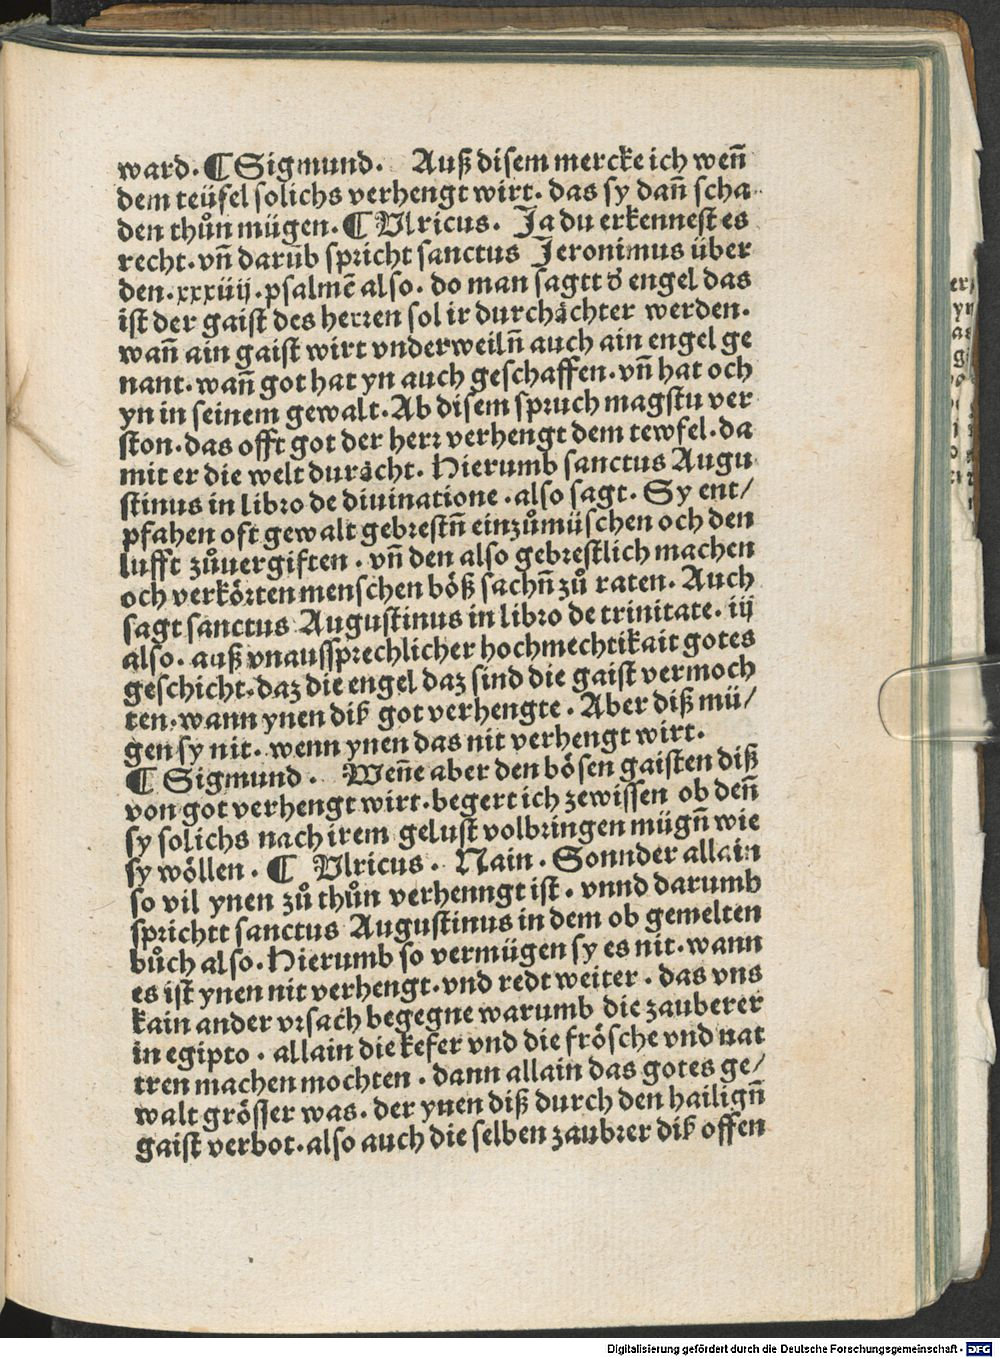 ward. ¶ Sigmund. Auß disem mercke ich weñ
dem teüfel solichs verhengt wirt. das sy dañ scha
den thůn mügen. ¶ Vlricus. Ja du erkennest es
recht. vñ darūb spricht sanctus Jeronimus über
den .xxxiiij. psalmē also. do man sagtt d̕ engel das
ist der gaist des herren sol ir durchächter werden.
wañ ain gaist wirt vnderweilñ auch ain engel ge
nant. wañ got hat yn auch geschaffen. vñ hat och
yn in seinem gewalt. Ab disem spruch magstu ver
ston. das offt got der herr verhengt dem tewfel. da
mit er die welt durächt. Hierumb sanctus Augu
stinus in libro de diuinatione. also sagt. Sy ent/
pfahen oft gewalt gebrestñ einzůmüschen och den
lufft zůuergiften. vñ den also gebrestlich machen
och verkörten menschen böß sachñ zů raten. Auch
sagt sanctus Augustinus in libro de trinitate. iij
also. auß vnaussprechlicher hochmechtikait gotes
geschicht. daz die engel daz sind die gaist vermoch
ten. wann ynen dik got verhengte. Aber diß mü/
gen sy nit. wenn ynen das nit verhengt wirt.
¶ Sigmund. Weñe aber den bösen gaisten diß
von got verhengt wirt. begert ich zewissen ob deñ
sy solichs nach irem gelust volbringen mügñ wie
sy wöllen. ¶ Vlricus. Nain. Sonnder allain
so vil ynen zů thůn verhenngt ist. vnnd darumb
sprichtt sanctus Augustinus in dem ob gemelten
bůch also. Hierumb so vermügen sy es nit. wann
es ist ynen nit verhengt. vnd redt weiter. das vns
kain ander vrsach begegne warumb die zauberer
in egipto. allain die kefer vnd die frösche vnd nat
tren machen mochten. dann allain das gotes ge/
walt grösser was. der ynen diß durch den hailigñ
gaist verbot. also auch die selben zaubrer dik offen
Digitalisierung gefördert durch die Deutsche Forschungsgemeinschaft - DFG